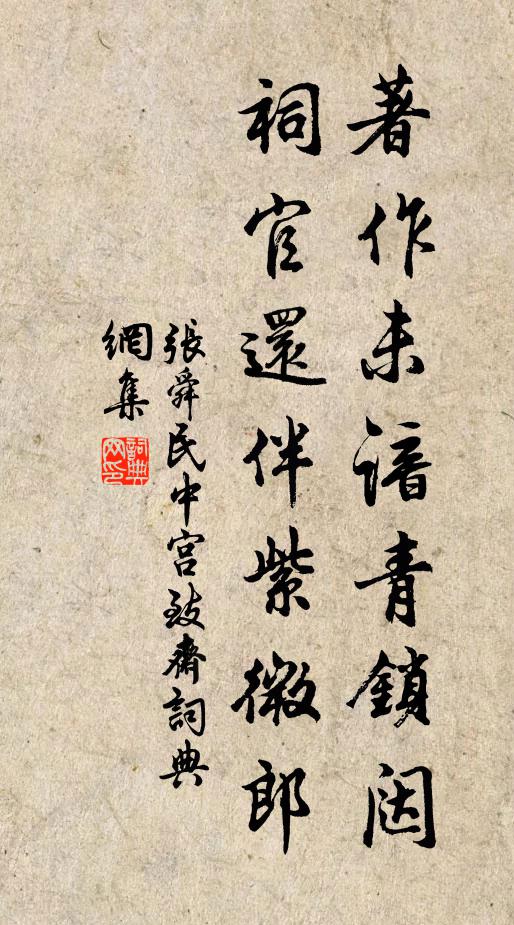 著作未諳青鎖闥
祠官還伴紫微郎
張舜民中宮致齋詞典
網集
詞典網印